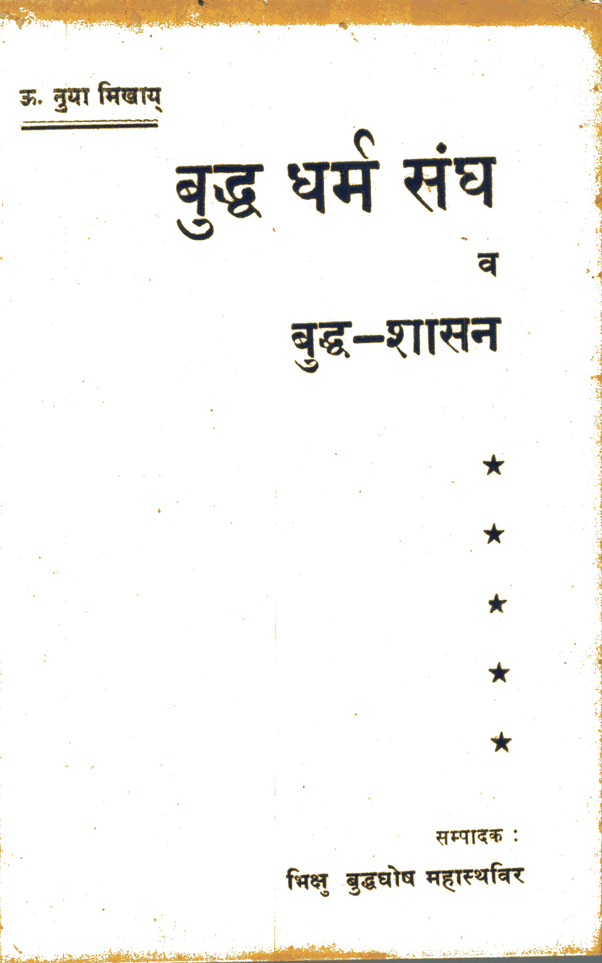 ऊ. नुया मिखाय्
बुद्ध धर्म संघ
व
बुद्ध-शासन
सम्पादक :
भिक्षु बुद्धघोष महास्थविर